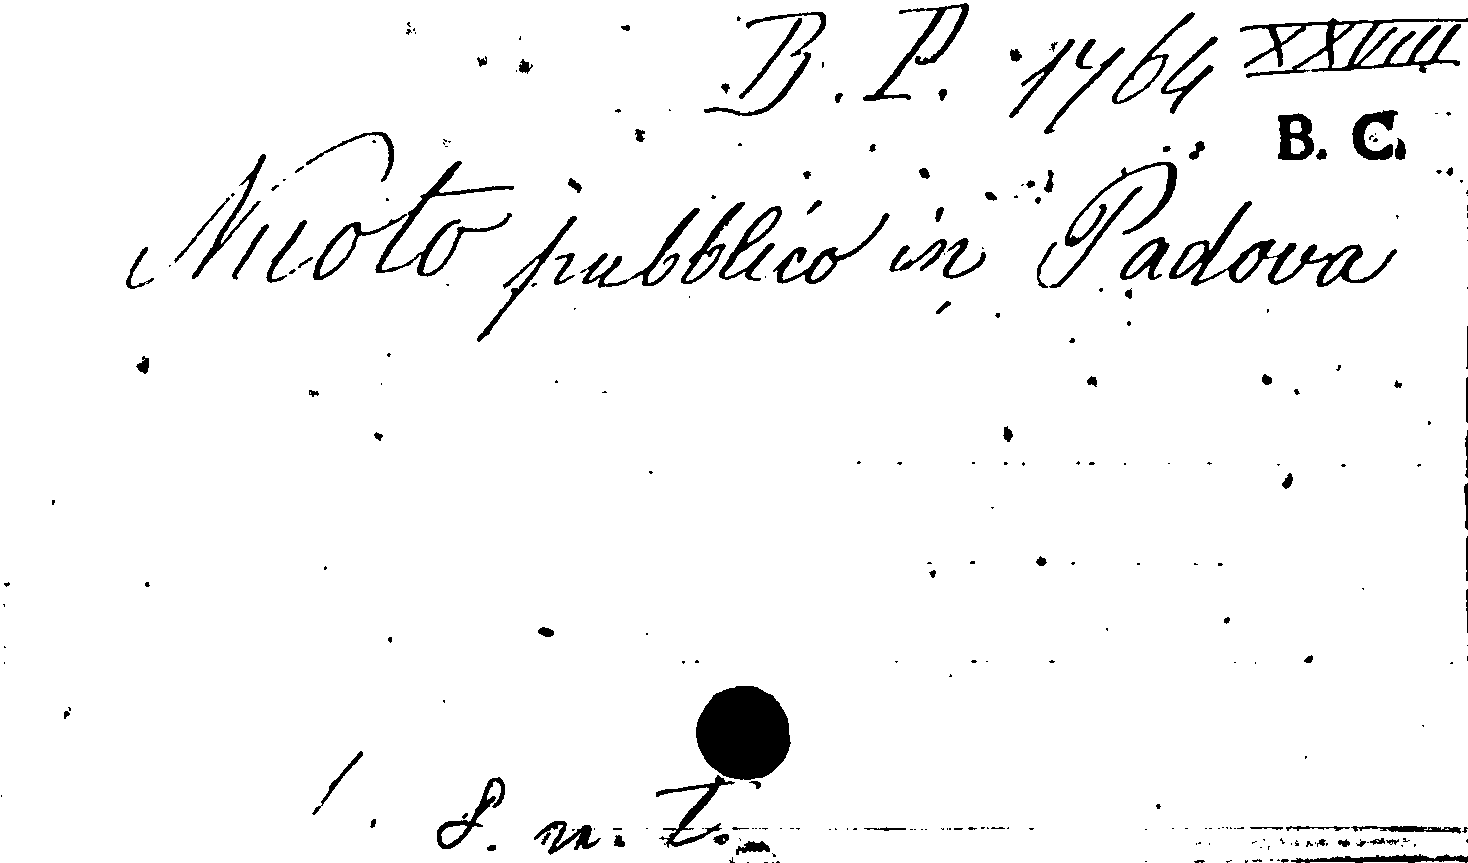 B. P. 1764 XXVIII
B. C.
Nuoto pubblico in Padova
1. S. n. T.